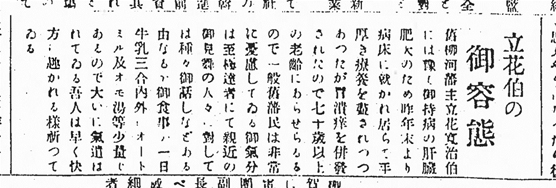 立花伯の
御容態
舊柳河藩主立花寬治伯
には豫て御持病の肝臓
肥大のため昨年末より
病床に就かれ居らて手
厚き療養を盡されつつ
あつたが胃潰瘍を併發
されたので七十歳以上
の老齢にわらせらるる
ので一般舊藩民は非常
に憂慮してゐる御氣分
は至極達者にて親近の
御見舞の人々に對して
は種々御話しなどある
由なるが御食事が一日
牛乳三合内外、オート
ミル及オモ湯等少量で
あるので大いに氣遣は
れてゐる吾人は早く快
方に趣かれる樣祈つて
ゐる